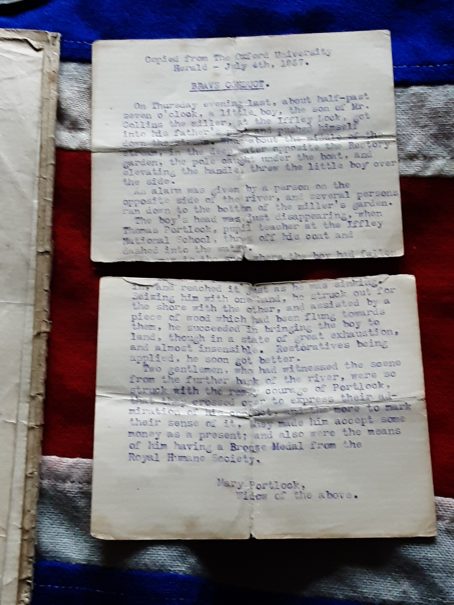 Copied from The Oxford University
Herald - July 4th, 1857.
BRAVE CONDUCT.
On Thursday evening last, about half-past
seven o'clock, a little boy, the son of Mr.
Collins the miller, at the Iffley Lock, got
into his father's and pushed himself
down the about the
opposite the Rectory
garden, the pole caught under the boat, and
elevating the handle, threw the little boy over
the side.
An alarm was given by a person on the
opposite side of the river, and several persons
ran down to the bottom of the miller's garden.
The boy's head was just disappearing, when
Thomas Portlock, pupil teacher at the Iffley
National School, threw off his coat and
dashed into the
where the boy had fallen
and reached it just as he was sinking.
Seizing him with one hand, he struck out for
the shore with the other, and assisted by a
piece of wood which had been flung towards
them, he succeeded in bringing the boy to
land, though in a state of great exhaustion,
and almost insensible. Restoratives being
applied, he soon got better.
Two gentlemen, who had witnessed the scene
from the further bank of the river, were so
struck with the courage of Portlock,
that they crossed over to express their ad-
miration of his and the more to mark
their sense of it, they made him accept some
money as a present; and also were the means
of him having a Bronze Medal from the
Royal Humane Society.
Mary Portlock,
Widow of the above.